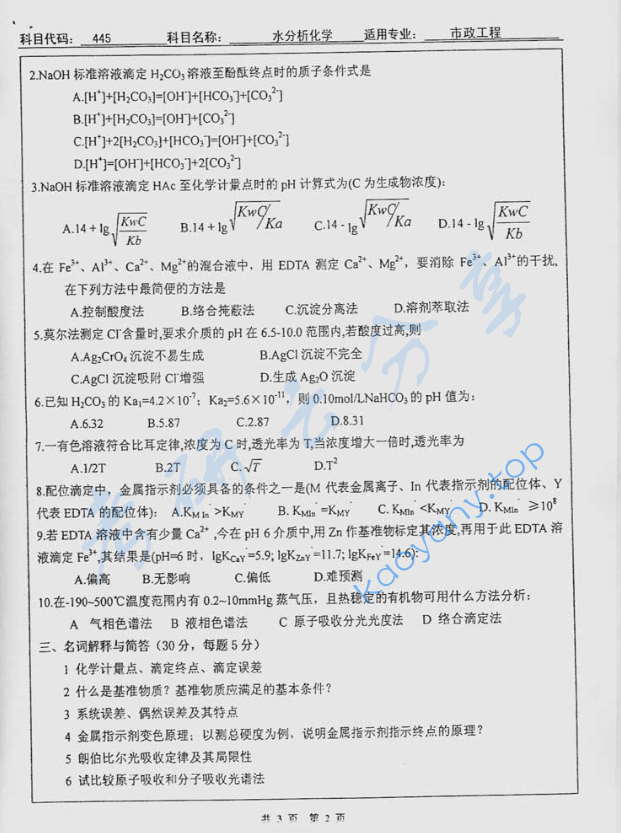 科目代码： 445 科目名称： 水分析化学 适用专业： 市政工程
2.NaOH 标准溶液滴定 H₂CO₃ 溶液至酚酞终点时的质子条件式是
A.[H⁺]+[H₂CO₃]=[OH⁻]+[HCO₃⁻]+[CO₃²⁻]
B.[H⁺]+[H₂CO₃]=[OH⁻]+[CO₃²⁻]
C.[H⁺]+2[H₂CO₃]+[HCO₃⁻]=[OH⁻]+[CO₃²⁻]
D.[H⁺]=[OH⁻]+[HCO₃⁻]+2[CO₃²⁻]
3.NaOH 标准溶液滴定 HAc 至化学计量点时的 pH 计算式为(C 为生成物浓度):
A.14 + lg√(KwC/Kb) B.14 + lg√(KwC/Ka) C.14 - lg√(KwC/Ka) D.14 - lg√(KwC/Kb)
4.在 Fe³⁺、Al³⁺、Ca²⁺、Mg²⁺的混合液中，用 EDTA 测定 Ca²⁺、Mg²⁺，要消除 Fe³⁺、Al³⁺的干扰,
在下列方法中最简便的方法是
A.控制酸度法 B.络合掩蔽法 C.沉淀分离法 D.溶剂萃取法
5.莫尔法测定 Cl⁻含量时,要求介质的 pH 在 6.5-10.0 范围内,若酸度过高,则
A.Ag₂CrO₄ 沉淀不易生成 B.AgCl 沉淀不完全
C.AgCl 沉淀吸附 Cl⁻增强 D.生成 Ag₂O 沉淀
6.已知 H₂CO₃ 的 Ka₁=4.2×10⁻⁷；Ka₂=5.6×10⁻¹¹，则 0.10mol/LNaHCO₃ 的 pH 值为：
A.6.32 B.5.87 C.2.87 D.8.31
7.一有色溶液符合比耳定律,浓度为 C 时,透光率为 T,当浓度增大一倍时,透光率为
A.1/2T B.2T C.√T D.T²
8.配位滴定中，金属指示剂必须具备的条件之一是(M 代表金属离子、In 代表指示剂的配位体、Y
代表 EDTA 的配位体): A.K_MIn' >K_MY' B. K_MIn' =K_MY' C. K_MIn' <K_MY' D. K_MIn' ≥10⁸
9.若 EDTA 溶液中含有少量 Ca²⁺ ,今在 pH 6 介质中,用 Zn 作基准物标定其浓度,再用于此 EDTA 溶
液滴定 Fe³⁺,其结果是(pH=6 时，lgK_CaY'=5.9; lgK_ZnY'=11.7; lgK_FeY'=14.6):
A.偏高 B.无影响 C.偏低 D.难预测
10.在-190~500℃温度范围内有 0.2~10mmHg 蒸气压，且热稳定的有机物可用什么方法分析：
A 气相色谱法 B 液相色谱法 C 原子吸收分光光度法 D 络合滴定法
三、名词解释与简答（30 分，每题 5 分）
1 化学计量点、滴定终点、滴定误差
2 什么是基准物质？基准物质应满足的基本条件？
3 系统误差、偶然误差及其特点
4 金属指示剂变色原理；以测总硬度为例，说明金属指示剂指示终点的原理？
5 朗伯比尔光吸收定律及其局限性
6 试比较原子吸收和分子吸收光谱法
共 3 页 第 2 页
考研云分享
kaoyany.top